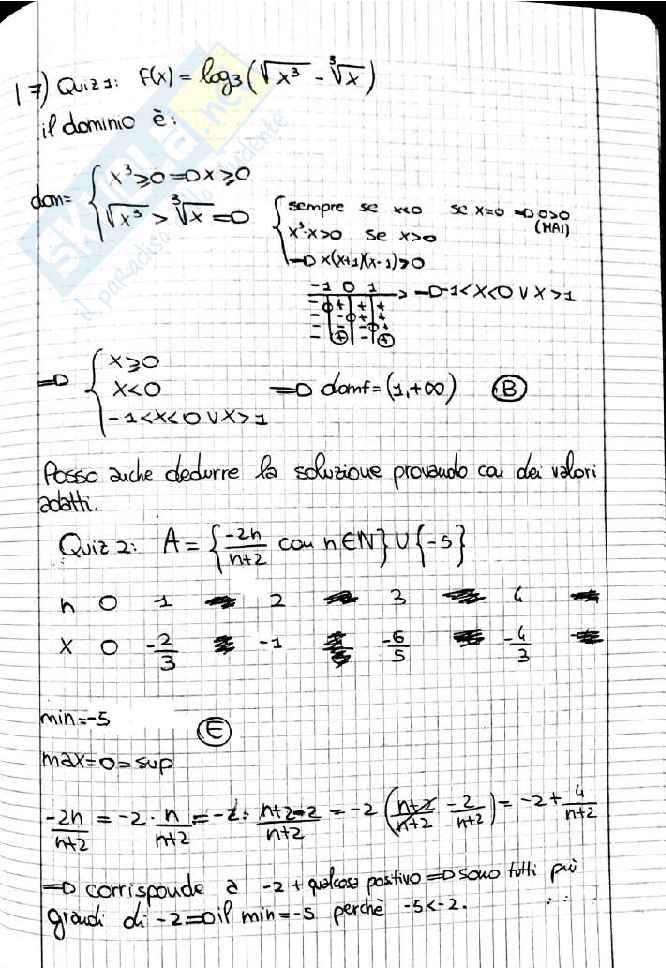 17) Quiz 1: f(x) = log₃(√x³ - ∛x)
il dominio è:
dom= { x³≥0 ⇒ x≥0
√x³ > ∛x ⇒ { sempre se x<0 se x=0 ⇒ 0>0 (MAI)
x³-x>0 se x>0
⇒ x(x+1)(x-1)>0
-1 0 1 ⇒ -1<x<0 ∨ x>1
- + + +
- - + +
- - - +
- + - +
⇒ { x≥0
x<0 ⇒ domf=(1,+∞) (B)
-1<x<0 ∨ x>1
Posso anche dedurre la soluzione provando con dei valori
adatti.
Quiz 2: A = { -2n/n+2 con n∈N} ∪ {-5}
n 0 1 2 3 4
x 0 -2/3 -1 -6/5 -4/3
min=-5 (E)
max=0=sup
-2n/n+2 = -2 · n/n+2 = -2 · n+2-2/n+2 = -2 (n+2/n+2 - 2/n+2) = -2 + 4/n+2
⇒ corrisponde a -2 + qualcosa positivo ⇒ sono tutti più
grandi di -2 ⇒ il min=-5 perchè -5<-2.
SKUOLA.net
il paradiso dello studente